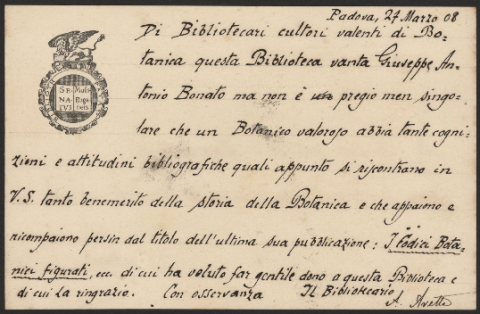 Padova, 27 Marzo 08
Di Bibliotecari cultori valenti di Bo-
tanica questa Biblioteca vanta Giuseppe An-
tonio Bonato ma non è pregio men singo-
lare che un Botanico valoroso abbia tante cogni-
zioni e attitudini bibliografiche quali appunto si riscontrano in
V. S. tanto benemerito della storia della Botanica e che appaiono e
ricompaiono persin dal titolo dell'ultima sua pubblicazione: I Codici Bota-
nici figurati, ecc. di cui ha voluto far gentile dono a questa Biblioteca e
di cui La ringrazio. Con osservanza Il Bibliotecario
A. Avetta